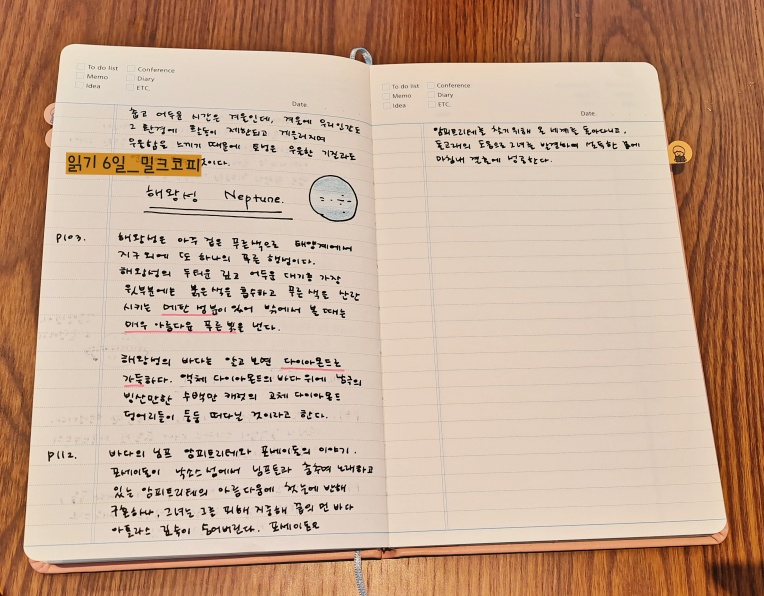 To do list
Conference
Memo
Diary
Idea
ETC.
Date
춥고 어두운 시간은 겨울인데, 겨울에 우리 인간도
그 환경에 활동이 제한되고 게을러지며
우울함을 느끼기 때문에 토성은 우울한 기질과도
읽기 6일_밀크코피
것이다.
해왕성 Neptune.
P103.
해왕성은 아주 검은 푸른색으로 태양계에서
지구 외에 또 하나의 푸른 행성이다.
해왕성의 두터운 깊고 어두운 대기층 가장
윗부분에는 붉은색을 흡수하고 푸른색을 산란
시키는 메탄 성분이 있어 밖에서 볼 때는
매우 아름다운 푸른 빛을 낸다.
해왕성의 바다는 알고 보면 다이아몬드로
가득하다. 액체 다이아몬드의 바다 위에 남극의
빙산만한 수백만 캐럿의 고체 다이아몬드
덩어리들이 둥둥 떠다닐 것이라고 한다.
P112.
바다의 님프 암피트리테와 포세이돈의 이야기.
포세이돈이 낙소스섬에서 님프들과 춤추며 노래하고
있는 암피트리테의 아름다움에 첫눈에 반해
구혼하나, 그녀는 그를 피해 지중해 끝의 먼 바다
아틀라스 깊숙이 숨어버린다. 포세이돈은
To do list
Conference
Memo
Diary
Idea
ETC.
Date
암피트리테를 찾기 위해 온 세계를 돌아다니고,
돌고래의 도움으로 그녀를 발견하여 설득한 끝에
마침내 결혼에 성공한다.